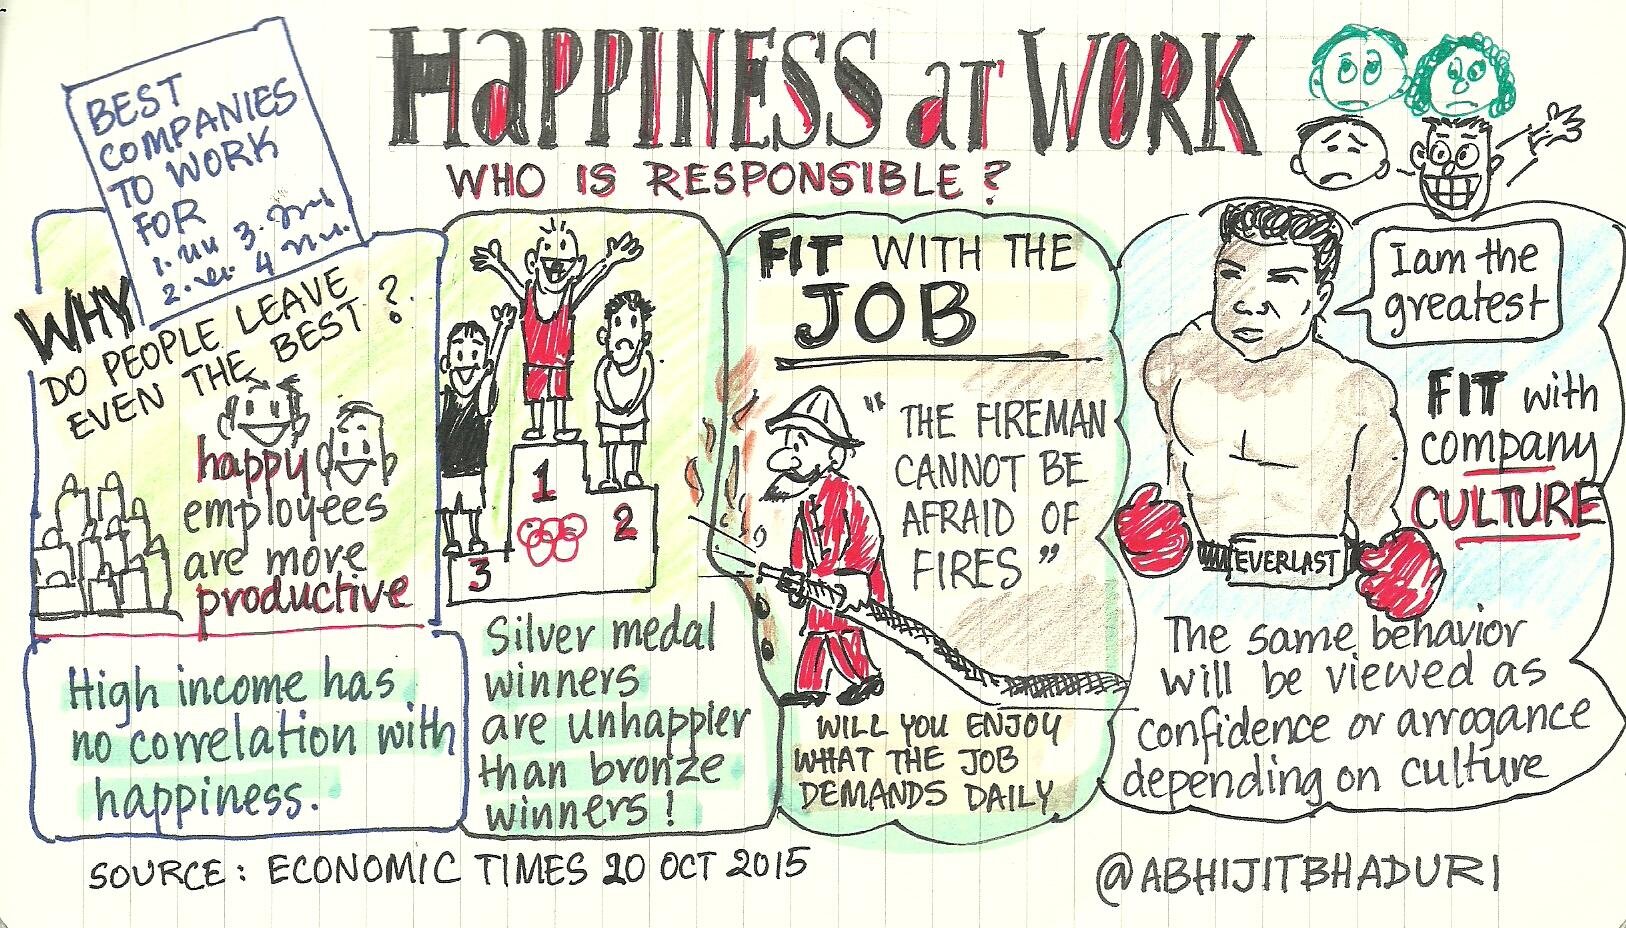 HAPPINESS at WORK
WHO IS RESPONSIBLE?
BEST
COMPANIES
TO WORK
FOR
1.
3.
2.
4
WHY
DO PEOPLE LEAVE
EVEN THE BEST?
happy
employees
are more
productive
High income has
no correlation with
happiness.
1
2
3
Silver medal
winners
are unhappier
than bronze
winners!
FIT WITH THE
JOB
"THE FIREMAN
CANNOT BE
AFRAID OF
FIRES"
WILL YOU ENJOY
WHAT THE JOB
DEMANDS DAILY
I am the
greatest
FIT with
company
CULTURE
EVERLAST
The same behavior
will be viewed as
confidence or arrogance
depending on culture
SOURCE: ECONOMIC TIMES 20 OCT 2015
@ABHIJITBHADURI